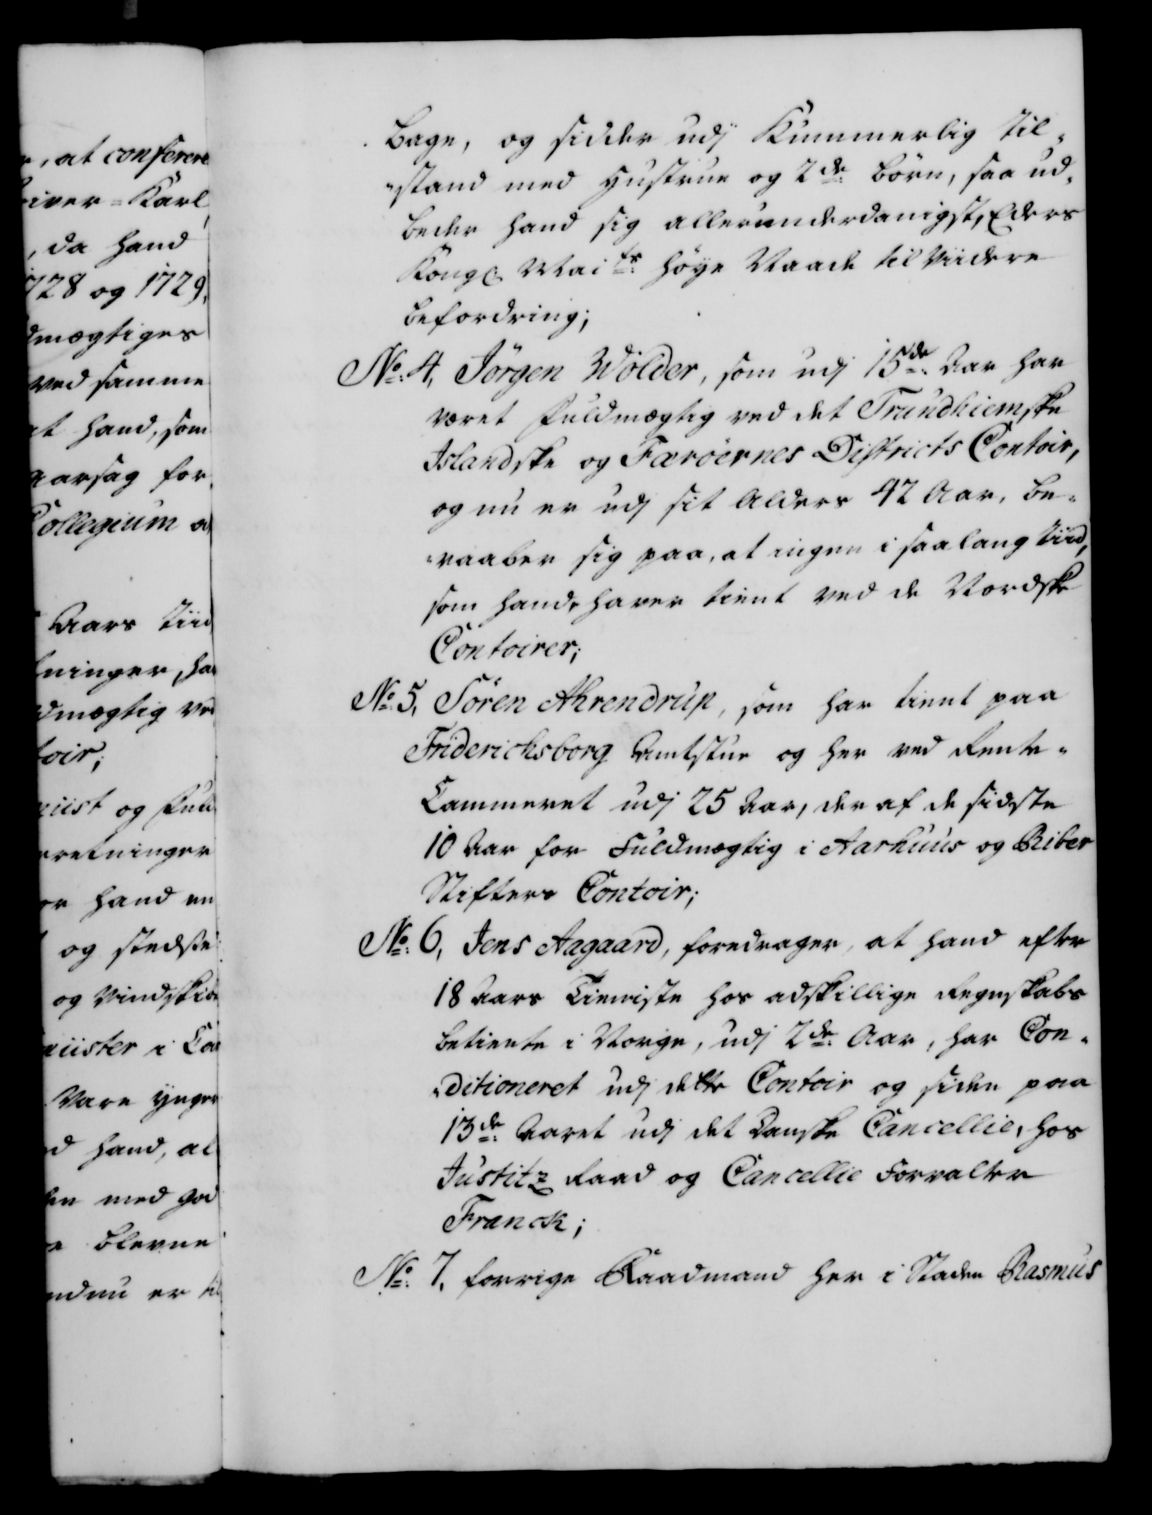 , at conferere
iver-Karl
, da hand
1728 og 1729,
dmægtiges
ved samme
at hand, som
aarsag for
Collegium
Aars Tiid
ninger, ha
dmægtig ved
toir;
og Ful
retninger
hand en
og stedse
og Vindskib
i Co
Vare ynger
hand, at
med god
blevne
endnu er til
bage, og sidder udj Kummerlig til-
-stand med Hustrue og 2de børn, saa ud-
beder hand sig allerunderdanigst, Eders
Kongl Maits høye Naade til Viidere
befordring;
No. 4, Jörgen Wölder, som udj 15de Aar har
været fuldmægtig ved det Trundhiemske
Islandske og Færöernes Districts Contoir,
og nu er udj sit Alders 42 Aar, be-
-raaber sig paa, at ingen i saa lang tiid,
som hand, haver tient ved de Nordske
Contoirer;
No. 5, Sören Ahrendrup, som har tient paa
Fridericksborg Amtstue og her ved Rente-
Cammeret udj 25 Aar, der af de sidste
10 Aar for Fuldmægtig i Aarhuus og Riber
Stifters Contoir;
No. 6, Jens Aagaard, foredrager, at hand efter
18 Aars Tieniste hos adskillige Regnskabs
betiente i Norge, udj 2de Aar, har Con-
-ditioneret udj dette Contoir og siden paa
13de Aaret udj det Danske Cancellie, hos
Justitz Raad og Cancellie Forvalter
Franck;
No. 7, forrige Raadmand her i Staden Rasmus